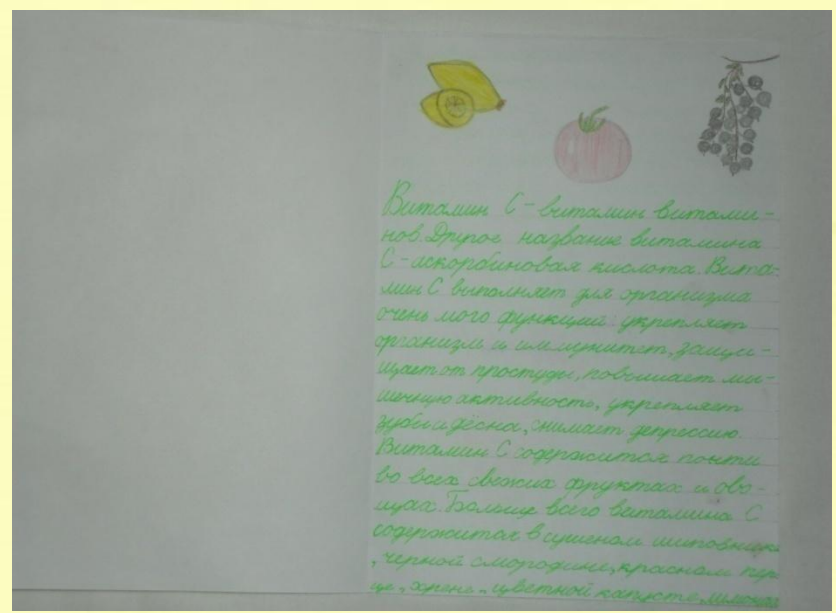 Витамин С - витамин витами-
нов. Другое название витамина
С - аскорбиновая кислота. Вита-
мин С выполняет для организма
очень мого функций: укрепляет
организм и иммунитет, защи-
щает от простуды, повышает мы-
шечную активность, укрепляет
зубы и дёсна, снимает депрессию.
Витамин С содержится почти
во всех свежих фруктах и ово-
щах. Больше всего витамина С
содержится в сушеном шиповнике
, черной смородине, красном пер-
це, хрене, цветной капусте, лимонах